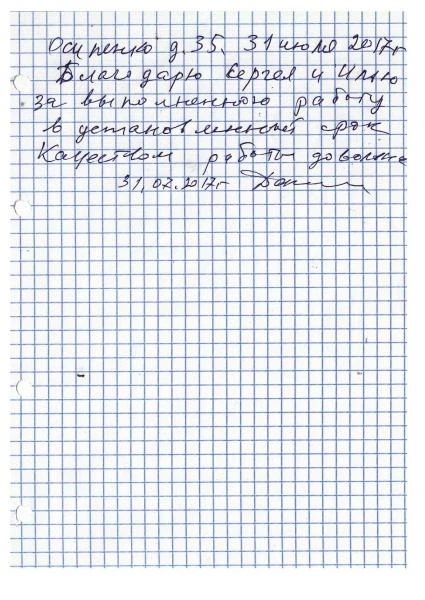 Осипенко д. 35. 31 июля 2017г
Благодарю Сергея и Илью
за выполненную работу
в установленный срок
Качеством работы довольна
31.07.2017г